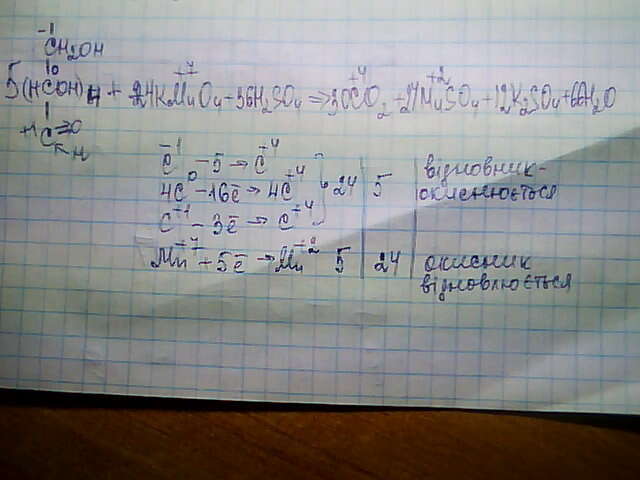 -1
CH2OH
|0
5(HCOH)4 + 24KMnO4 + 36H2SO4 => 30CO2 + 24MnSO4 + 12K2SO4 + 66H2O
+1C=O
H
C-1 - 5 → C+4
4C0 - 16ē → 4C+4 24 5 відновник-
окиснюється
C+1 - 3ē → C+4
Mn+7 + 5ē → Mn+2 5 24 окисник
відновлюється